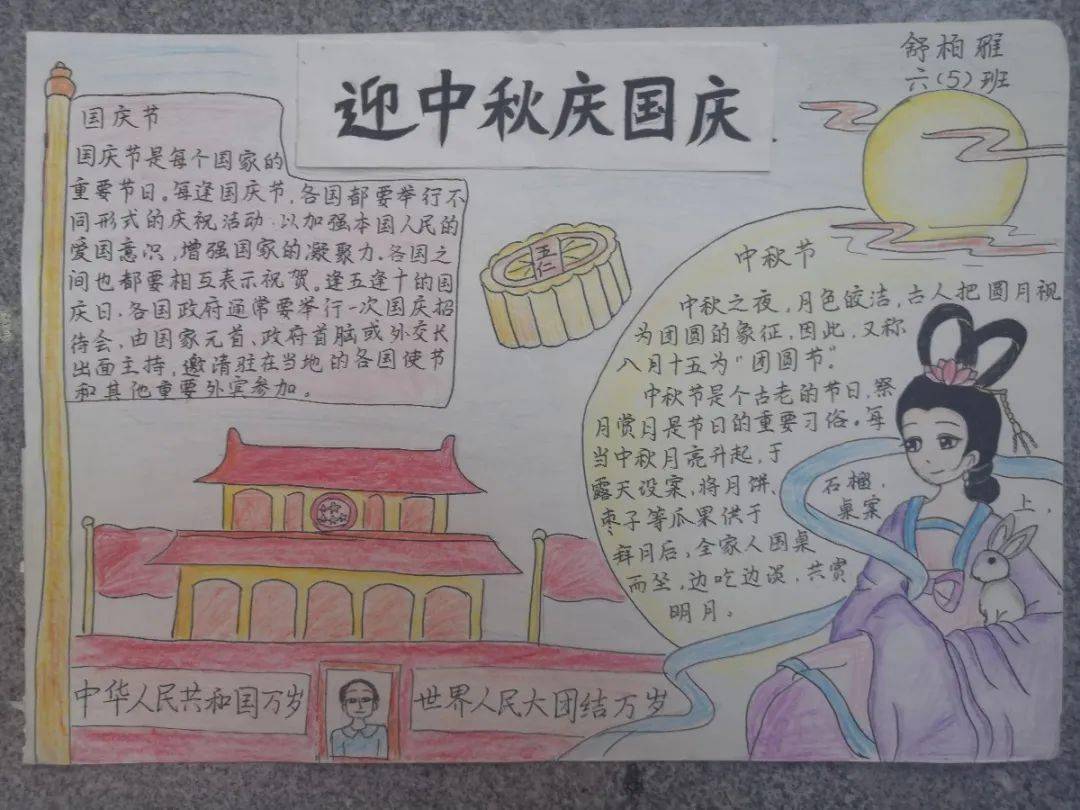 迎中秋庆国庆
舒柏雅
六(5)班
国庆节
国庆节是每个国家的
重要节日。每逢国庆节,各国都要举行不
同形式的庆祝活动.以加强本国人民的
爱国意识,增强国家的凝聚力。各国之
间也都要相互表示祝贺。逢五逢十的国
庆日,各国政府通常要举行一次国庆招
待会,由国家元首、政府首脑或外交长
出面主持,邀请驻在当地的各国使节
和其他重要外宾参加。
五仁
中秋节
中秋之夜,月色皎洁,古人把圆月视
为团圆的象征,因此,又称
八月十五为“团圆节”。
中秋节是个古老的节日,祭
月赏月是节日的重要习俗。每
当中秋月亮升起,于
露天设案,将月饼、石榴、
枣子等瓜果供于桌案上,
拜月后,全家人围桌
而坐,边吃边谈,共赏
明月。
中华人民共和国万岁
世界人民大团结万岁